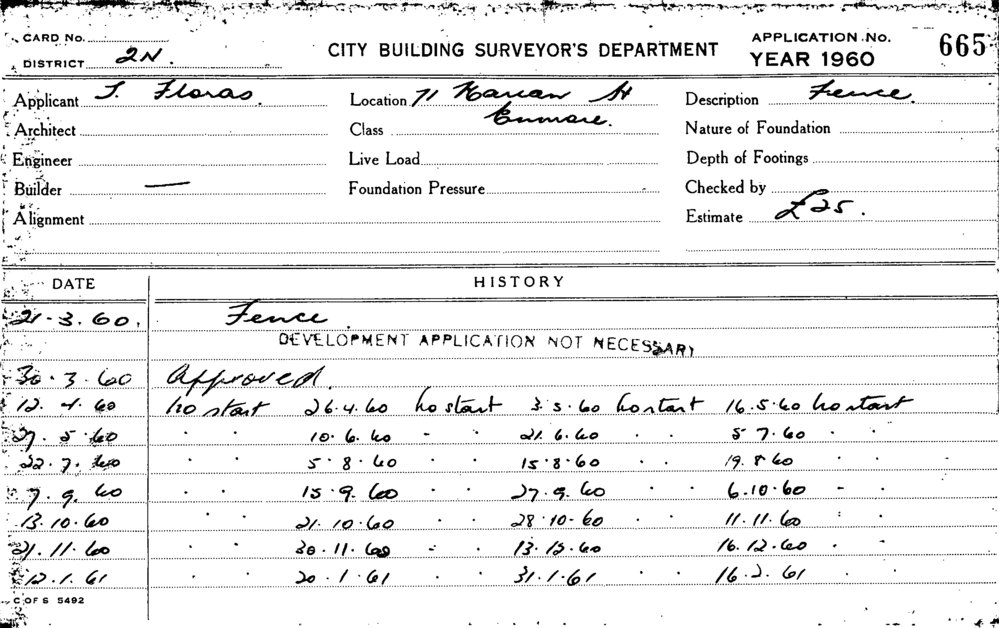 CARD No.
DISTRICT 2N.
CITY BUILDING SURVEYOR'S DEPARTMENT
APPLICATION No. 665
YEAR 1960
Applicant Floras
Location 71 Marian St
Enmore.
Description Fence.
Architect
Class
Nature of Foundation
Engineer
Live Load
Depth of Footings
Builder —
Foundation Pressure
Checked by
Alignment
Estimate £25.
DATE HISTORY
21.3.60. Fence
DEVELOPMENT APPLICATION NOT NECESSARY
30.3.60 Approved.
12.4.60 no start 26.4.60 no start 3.5.60 no start 16.5.60 no start
27.5.60 " " 10.6.60 " " 21.6.60 " " 5.7.60 " "
22.7.60 " " 5.8.60 " " 15.8.60 " " 19.8.60 " "
7.9.60 " " 15.9.60 " " 27.9.60 " " 6.10.60 " "
13.10.60 " " 21.10.60 " " 28.10.60 " " 11.11.60 " "
21.11.60 " " 30.11.60 " " 13.12.60 " " 16.12.60 " "
12.1.61 " " 20.1.61 " " 31.1.61 " " 16.2.61 " "
C OF S 5492